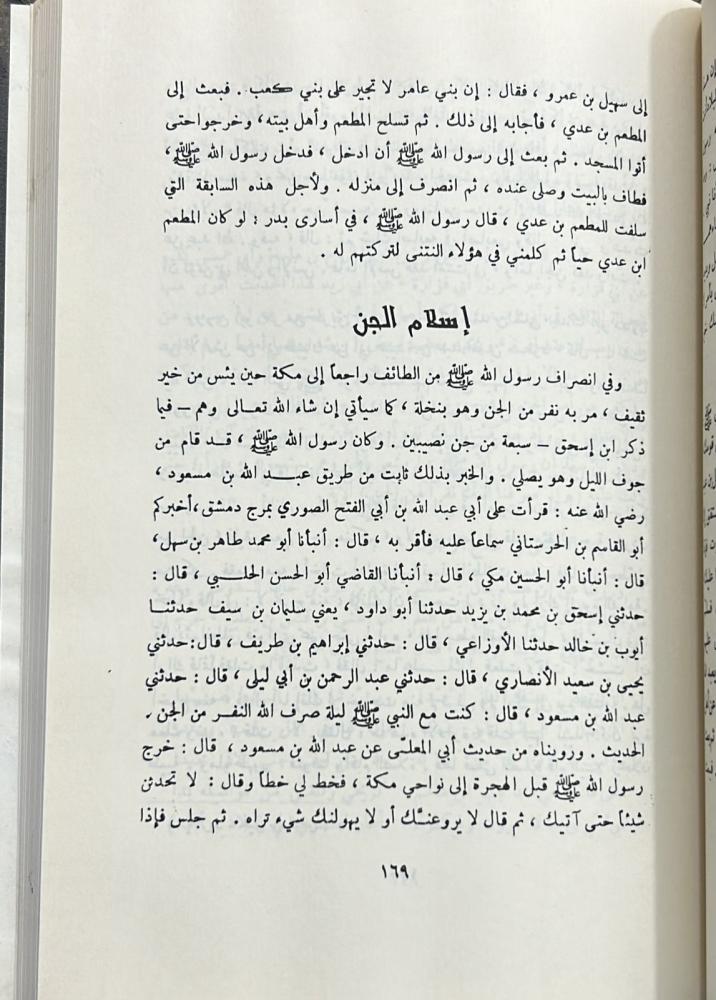 إلى سهيل بن عمرو ، فقال : إن بني عامر لا تجير على بني كعب . فبعث إلى
المطعم بن عدي ، فأجابه إلى ذلك . ثم تسلح المطعم وأهل بيته ، وخرجوا حتى
أتوا المسجد . ثم بعث إلى رسول الله ﷺ أن ادخل ، فدخل رسول الله ﷺ ،
فطاف بالبيت وصلى عنده ، ثم انصرف إلى منزله . ولأجل هذه السابقة التي
سلفت للمطعم بن عدي ، قال رسول الله ﷺ ، في أسارى بدر : لو كان المطعم
ابن عدي حياً ثم كلمني في هؤلاء النتنى لتركتهم له .
إسلام الجن
وفي انصراف رسول الله ﷺ من الطائف راجعاً إلى مكة حين يئس من خير
ثقيف ، مر به نفر من الجن وهو بنخلة ، كما سيأتي إن شاء الله تعالى وهم – فيما
ذكر ابن إسحق – سبعة من جن نصيبين . وكان رسول الله ﷺ ، قد قام من
جوف الليل وهو يصلي . والخبر بذلك ثابت من طريق عبد الله بن مسعود ،
رضي الله عنه : قرأت على أبي عبد الله بن أبي الفتح الصوري بمرج دمشق ، أخبركم
أبو القاسم بن الحرستاني سماعاً عليه فأقر به ، قال : أنبأنا أبو محمد طاهر بن سهل ،
قال : أنبأنا أبو الحسين مكي ، قال : أنبأنا القاضي أبو الحسن الحلبي ، قال :
حدثني إسحق بن محمد بن يزيد حدثنا أبو داود ، يعني سليمان بن سيف حدثنا
أيوب بن خالد حدثنا الأوزاعي ، قال : حدثني إبراهيم بن طريف ، قال : حدثني
يحيى بن سعيد الأنصاري ، قال : حدثني عبد الرحمن بن أبي ليلى ، قال : حدثني
عبد الله بن مسعود ، قال : كنت مع النبي ﷺ ليلة صرف الله النفر من الجن .
الحديث . ورويناه من حديث أبي المعلّى عن عبد الله بن مسعود ، قال : خرج
رسول الله ﷺ قبل الهجرة إلى نواحي مكة ، فخط لي خطاً وقال : لا تحدثن
شيئاً حتى آتيك ، ثم قال لا يروعنّك أو لا يهولنك شيء تراه . ثم جلس فإذا
١٦٩